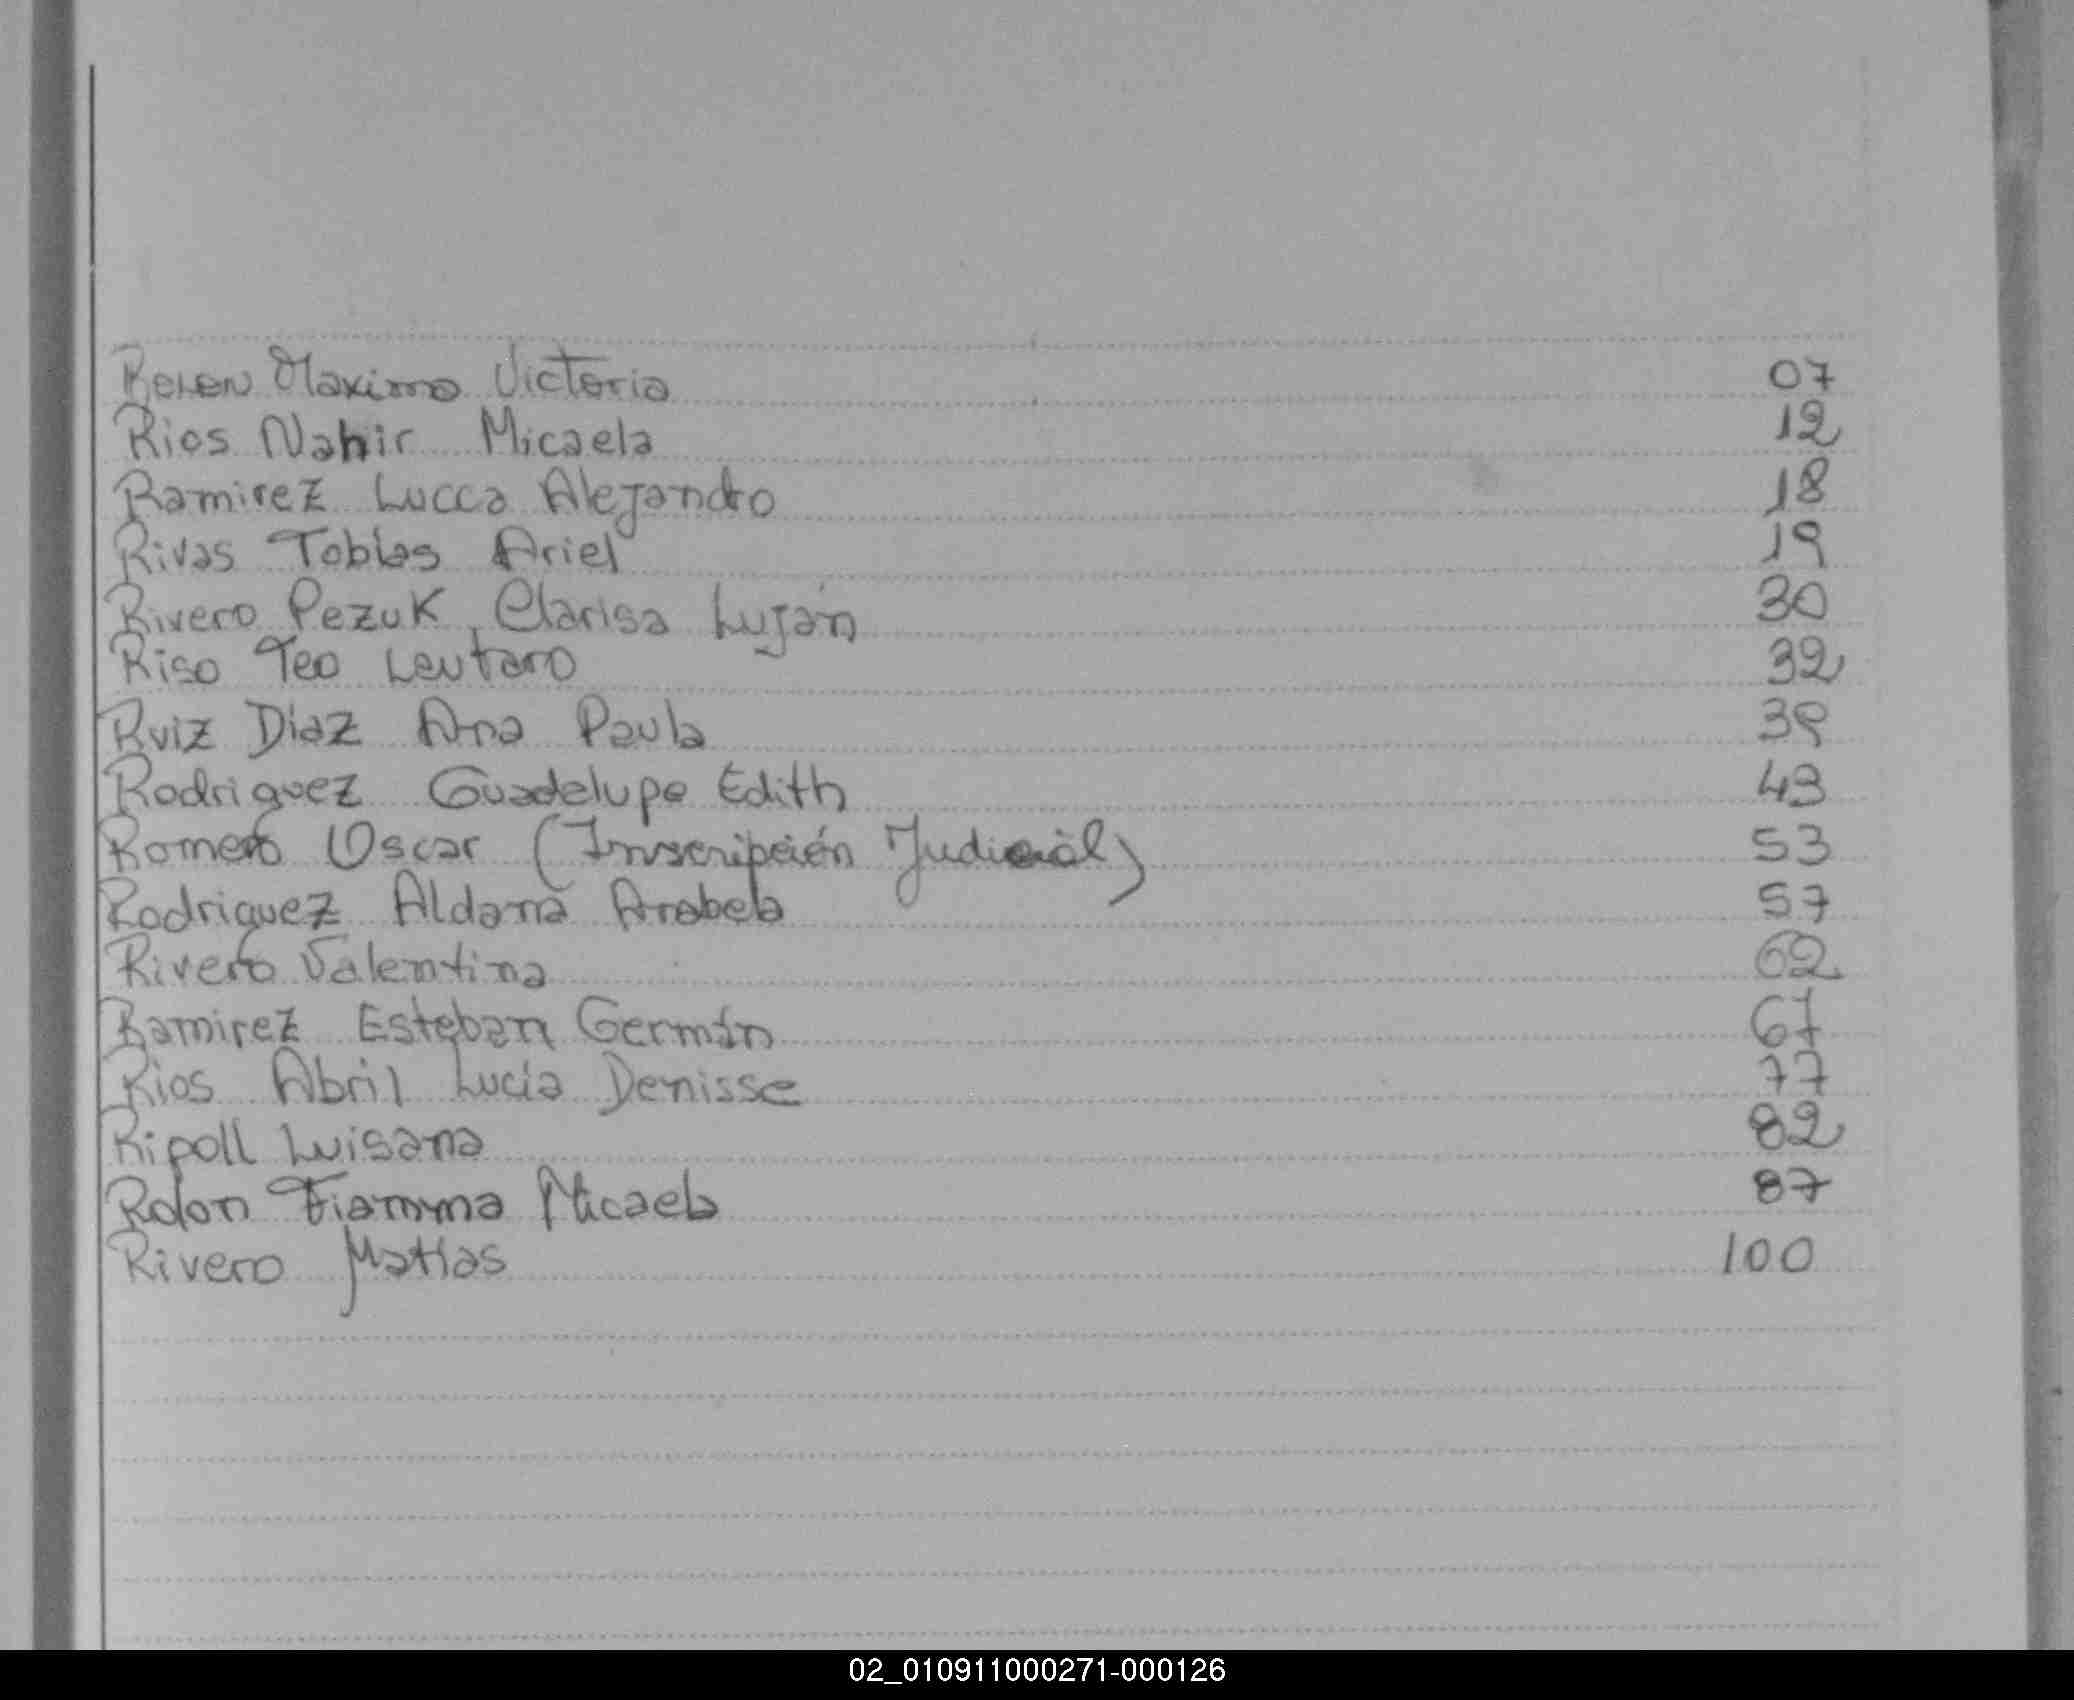 Máximo Victoria 07
Rios Nahir Micaela 12
Ramirez Lucca Alejandro 18
Rivas Tobias Ariel 19
Rivero Pezuk, Clarisa Luján 30
Riso Teo Lautaro 32
Ruiz Diaz Ana Paula 39
Rodriguez Guadelupe Edith 43
Romero Oscar (Inscripción Judicial) 53
Rodriguez Aldana Arabela 57
Rivero Valentina 62
Ramirez Esteban Germán 67
Rios Abril Lucía Denisse 77
Ripoll Luisana 82
Rolon Fiamma Micaela 87
Rivero Matías 100
02_010911000271-000126